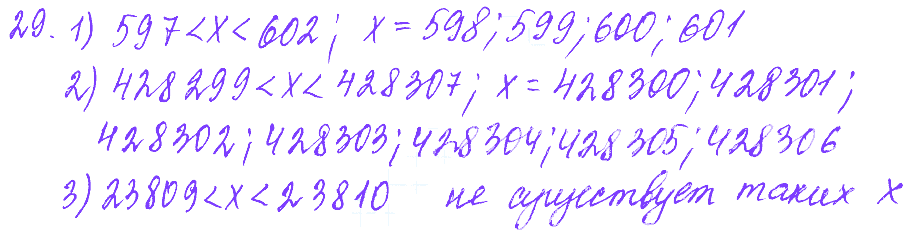 29. 1) 597 < x < 602; x = 598; 599; 600; 601
2) 428299 < x < 428307; x = 428300; 428301;
428302; 428303; 428304; 428305; 428306
3) 23809 < x < 23810 не существует таких x